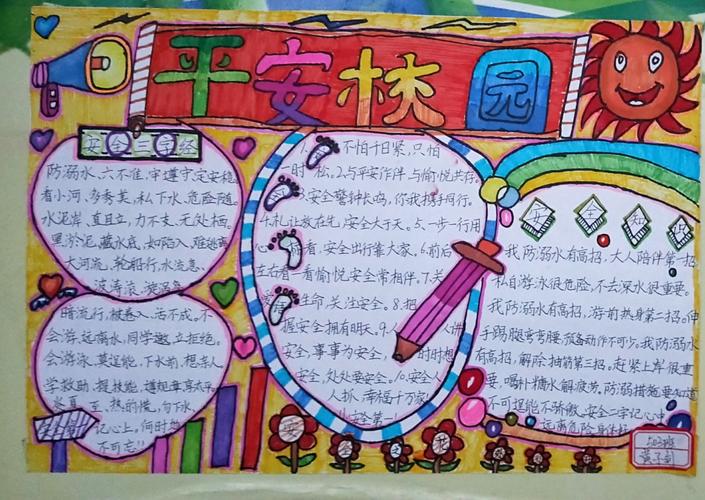 平安校园
安全三字经
防溺水,六不准,牢遵守,定安稳。
看小河,多秀美,私下水,危险随。
水泥岸,直且立,力不支,无处栖。
黑淤泥,藏水底,如陷入,难逃离
大河流,轮船行,水流急,
波涛滚,漩涡急
暗流行,被卷入,活不成。不
会游,远离水,同学邀,立拒绝。
会游泳,莫逞能,下水前,想亲人
学救助,提技能,
炎夏至,热的慌,勿下水,
记心上。何时想
不可忘!!
1、不怕千日紧,只怕
一时松。2、与平安作伴,与愉悦共存。
3、安全警钟长鸣,你我携手同行。
4、礼让放在先,安全大于天。5、一步一行用
心看,安全出行靠大家。6、前后
左右看一看愉悦安常相伴。7、关
生命,关注安全。8、把
握安全拥有明天。9、人讲
安全,事事为安全,时时想
安全,处处要安全。10、安全人
人抓,幸福千万家!
安全第一!
安全知识
我防溺水有高招,大人陪伴第一招
私自游泳很危险,不去深水很重要。
我防溺水有高招,游前热身第二招。伸
手踢腿弯弯腰,预备动作不可少。我防溺水
有高招,解除抽筋第三招。赶紧上岸很重
要,喝补糖水解疲劳。防溺措施要知道
不可逞能不骄傲。安全二字记心中
远离危险身体好